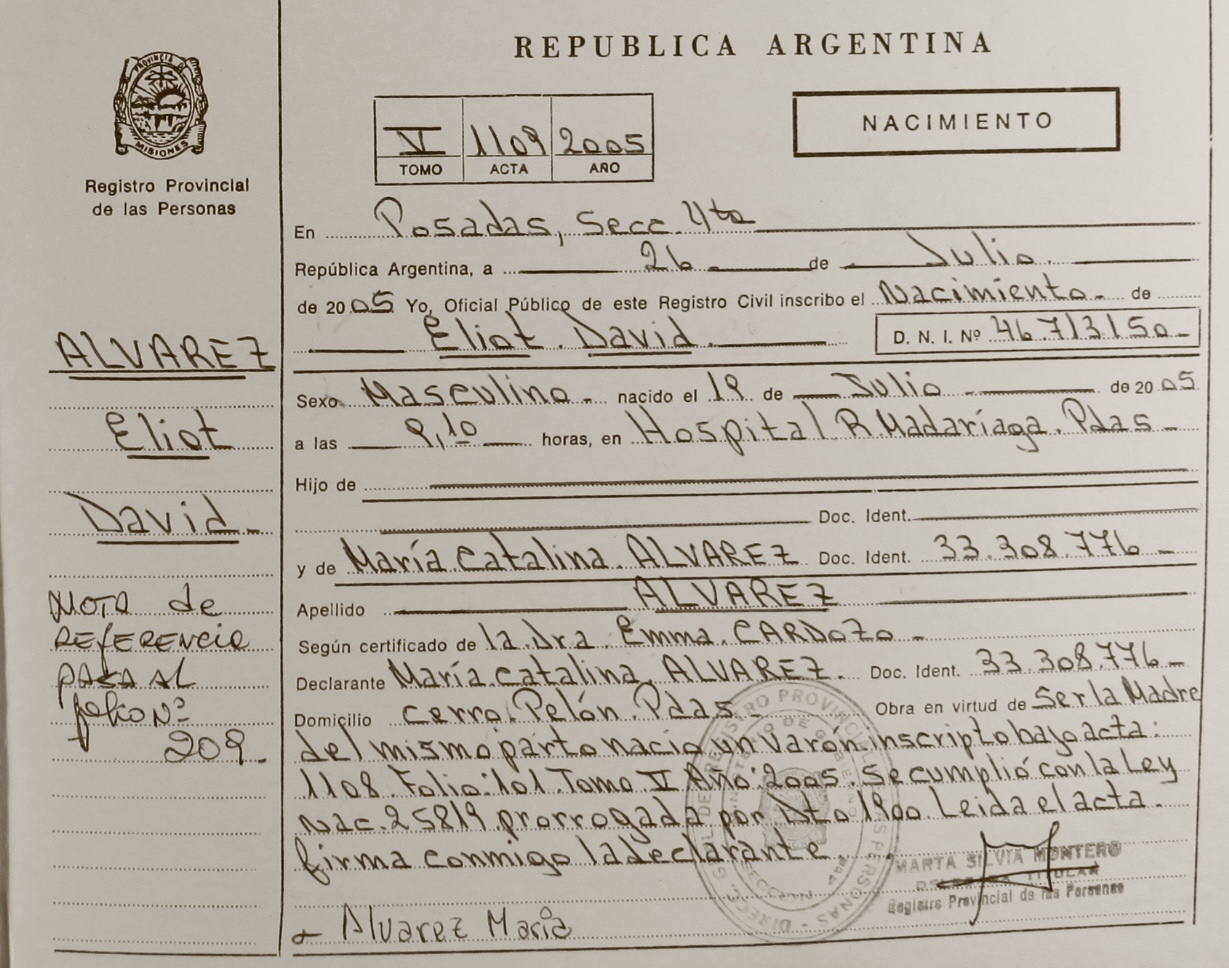 REPUBLICA ARGENTINA
PROVINCIA D MISIONES
Registro Provincial
de las Personas
V 1109 2005
TOMO ACTA AÑO
NACIMIENTO
En Posadas, Secc. 4ta
República Argentina, a 26 de Julio
de 2005 Yo, Oficial Público de este Registro Civil inscribo el Nacimiento de
Eliot David
D. N. I. Nº 46.713.150
ALVAREZ
Eliot
David
Sexo Masculino nacido el 19 de Julio de 2005
a las 9,10 horas, en Hospital R. Madariaga. Pdas
Hijo de
Doc. Ident.
y de María Catalina ALVAREZ Doc. Ident. 33.308.776
Apellido ALVAREZ
Según certificado de la Dra Emma CARDOZO
Declarante María Catalina ALVAREZ Doc. Ident. 33.308.776
Domicilio Cerro Pelón. Pdas. Obra en virtud de Ser la Madre
del mismo parto nacio un varón inscripto bajo acta:
1108 Folio: 101 Tomo V Año: 2005. Se cumplió con la Ley
Nac. 25819 prorrogada por Dto 1900. Leida el acta.
firma conmigo la declarante.
NOTA de
REFERENCIA
PASA AL
folio Nº
209.
MARTA SILVIA MONTERO
TITULAR
Registro Provincial de las Personas
Alvarez María